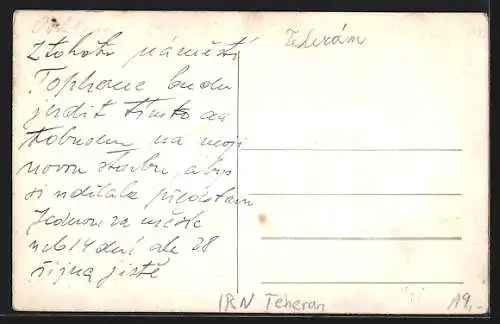 Z tohoto náměstí
Tophane budu
jezdit tímto
na moji
novou stavbu, abys
si udělala představu
Jednou za měsíc
neb 14 dní ale 28
října jistě
Teherán
IRN Teheran
19,-